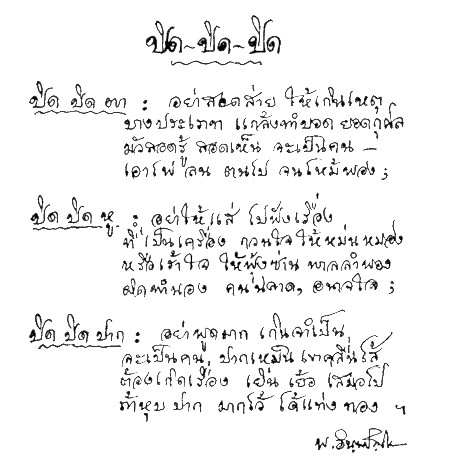 ปิด-ปิด-ปิด
ปิด ปิด ตา : อย่าสอดส่าย ให้เกินเหตุ
บางประเภท แกล้งทำบอด ยอดกุศล
มัวสอดรู้ สอดเห็น จะเป็นคน –
เอาไฟลน ตนไป จนไหม้พอง ;
ปิด ปิด หู : อย่าให้แส่ ไปฟังเรื่อง
ที่เป็นเครื่อง กวนใจ ให้หม่นหมอง
หรือเร้าใจ ให้ฟุ้งซ่าน พาลลำพอง
ผิดทำนอง คนฉลาด, อนาถใจ ;
ปิด ปิด ปาก : อย่าพูดมาก เกินจำเป็น
จะเป็นคน, ปากเหม็น เขาคลื่นไส้
ต้องเกิดเรื่อง เยิ่นเย้อ เสมอไป
ถ้าหุบปาก มากไว้ ได้แท่งทอง ฯ
พ. อินทปัญโญ